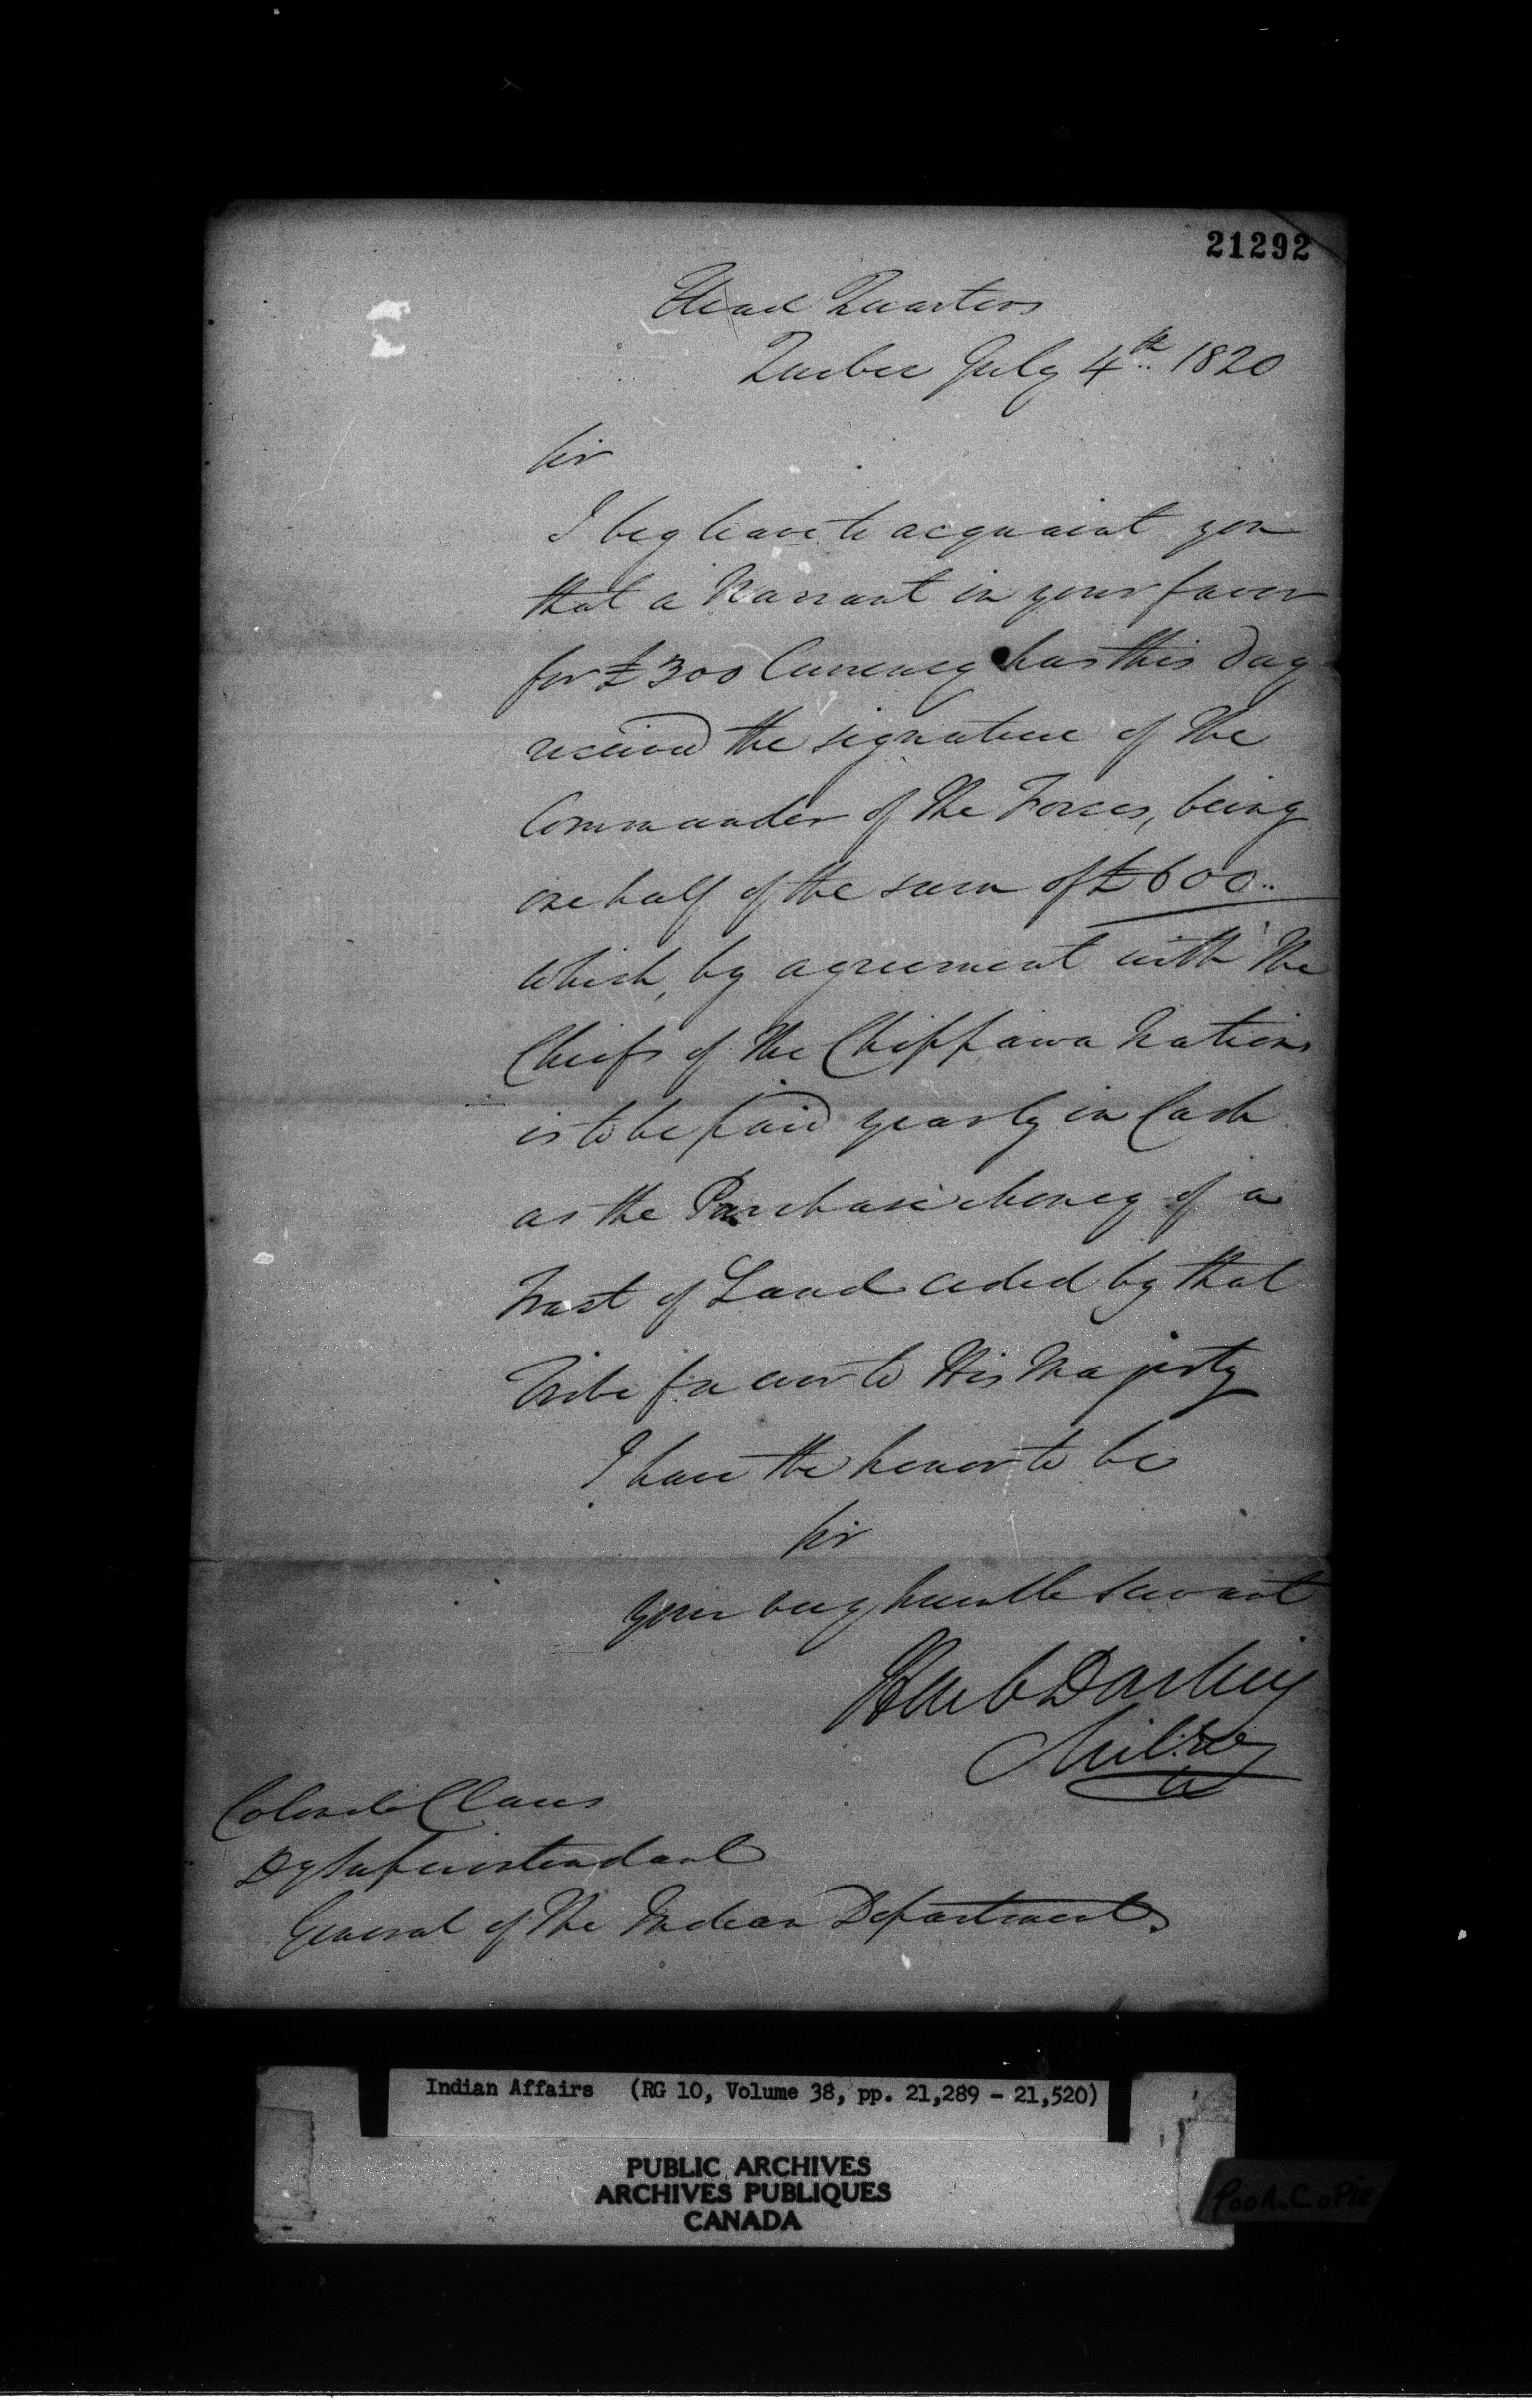 21292
Head Quarters
Quebec July 4th. 1820
Sir
I beg leave to acquaint you
that a Warrant in your favor
for £300 Currency has this day
received the signature of the
Commander of the Forces, being
one half of the sum of £600..
which, by agreement with the
Chiefs of the Chippawa Nation
is to be paid yearly in Cash
as the Purchase Money of a
Tract of Land ceded by that
Tribe for ever to His Majesty
I have the honor to be
Sir
your very humble servant
H C Darling
Mil: Secy
Colonel Claus
Dy Superintendant
General of the Indian Department
Indian Affairs (RG 10, Volume 38, pp. 21,289 - 21,520)
PUBLIC ARCHIVES
ARCHIVES PUBLIQUES
CANADA
Poor Copie